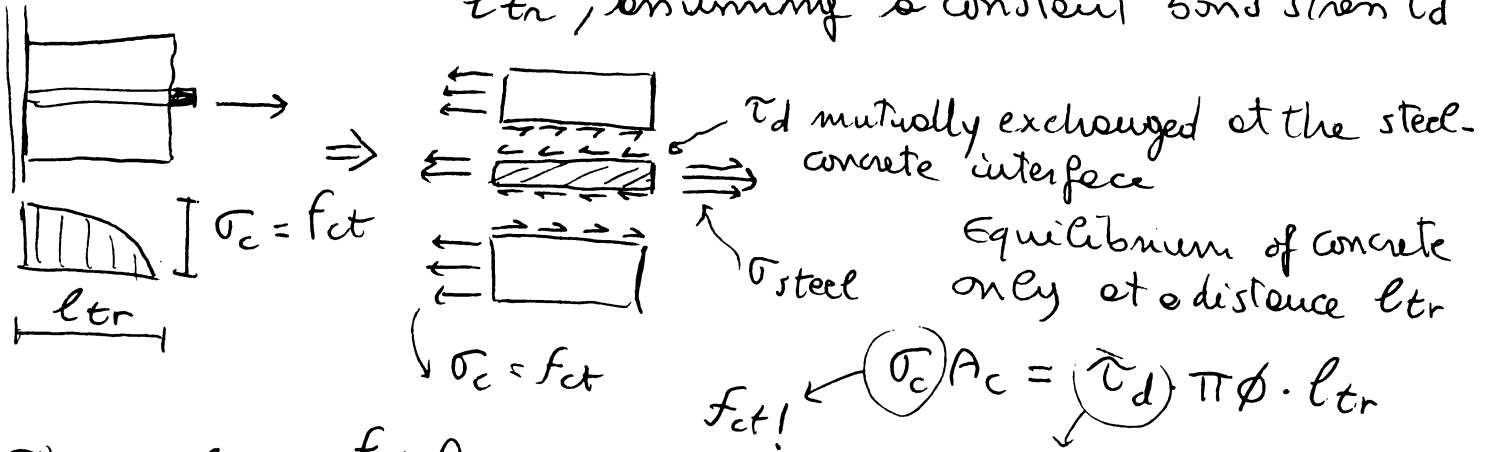 ltr, assuming a constant bond stress τd
τd mutually exchanged at the steel-
concrete interface
σc = fct
σsteel
Equilibrium of concrete
only at a distance ltr
ltr
σc = fct
fct!
σc Ac = τd · πϕ · ltr